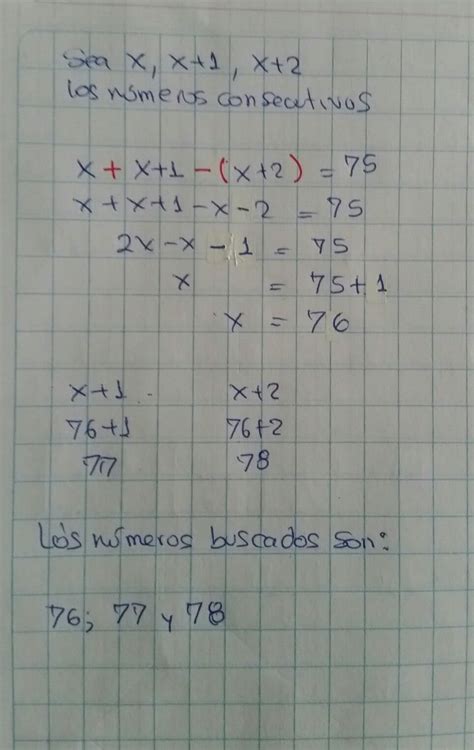 Sea x, x+1, x+2
los números consecutivos
x + x+1 - (x+2) = 75
x + x+1 - x - 2 = 75
2x - x - 1 = 75
x = 75 + 1
x = 76
x+1 x+2
76+1 76+2
77 78
Los números buscados son:
76; 77 y 78